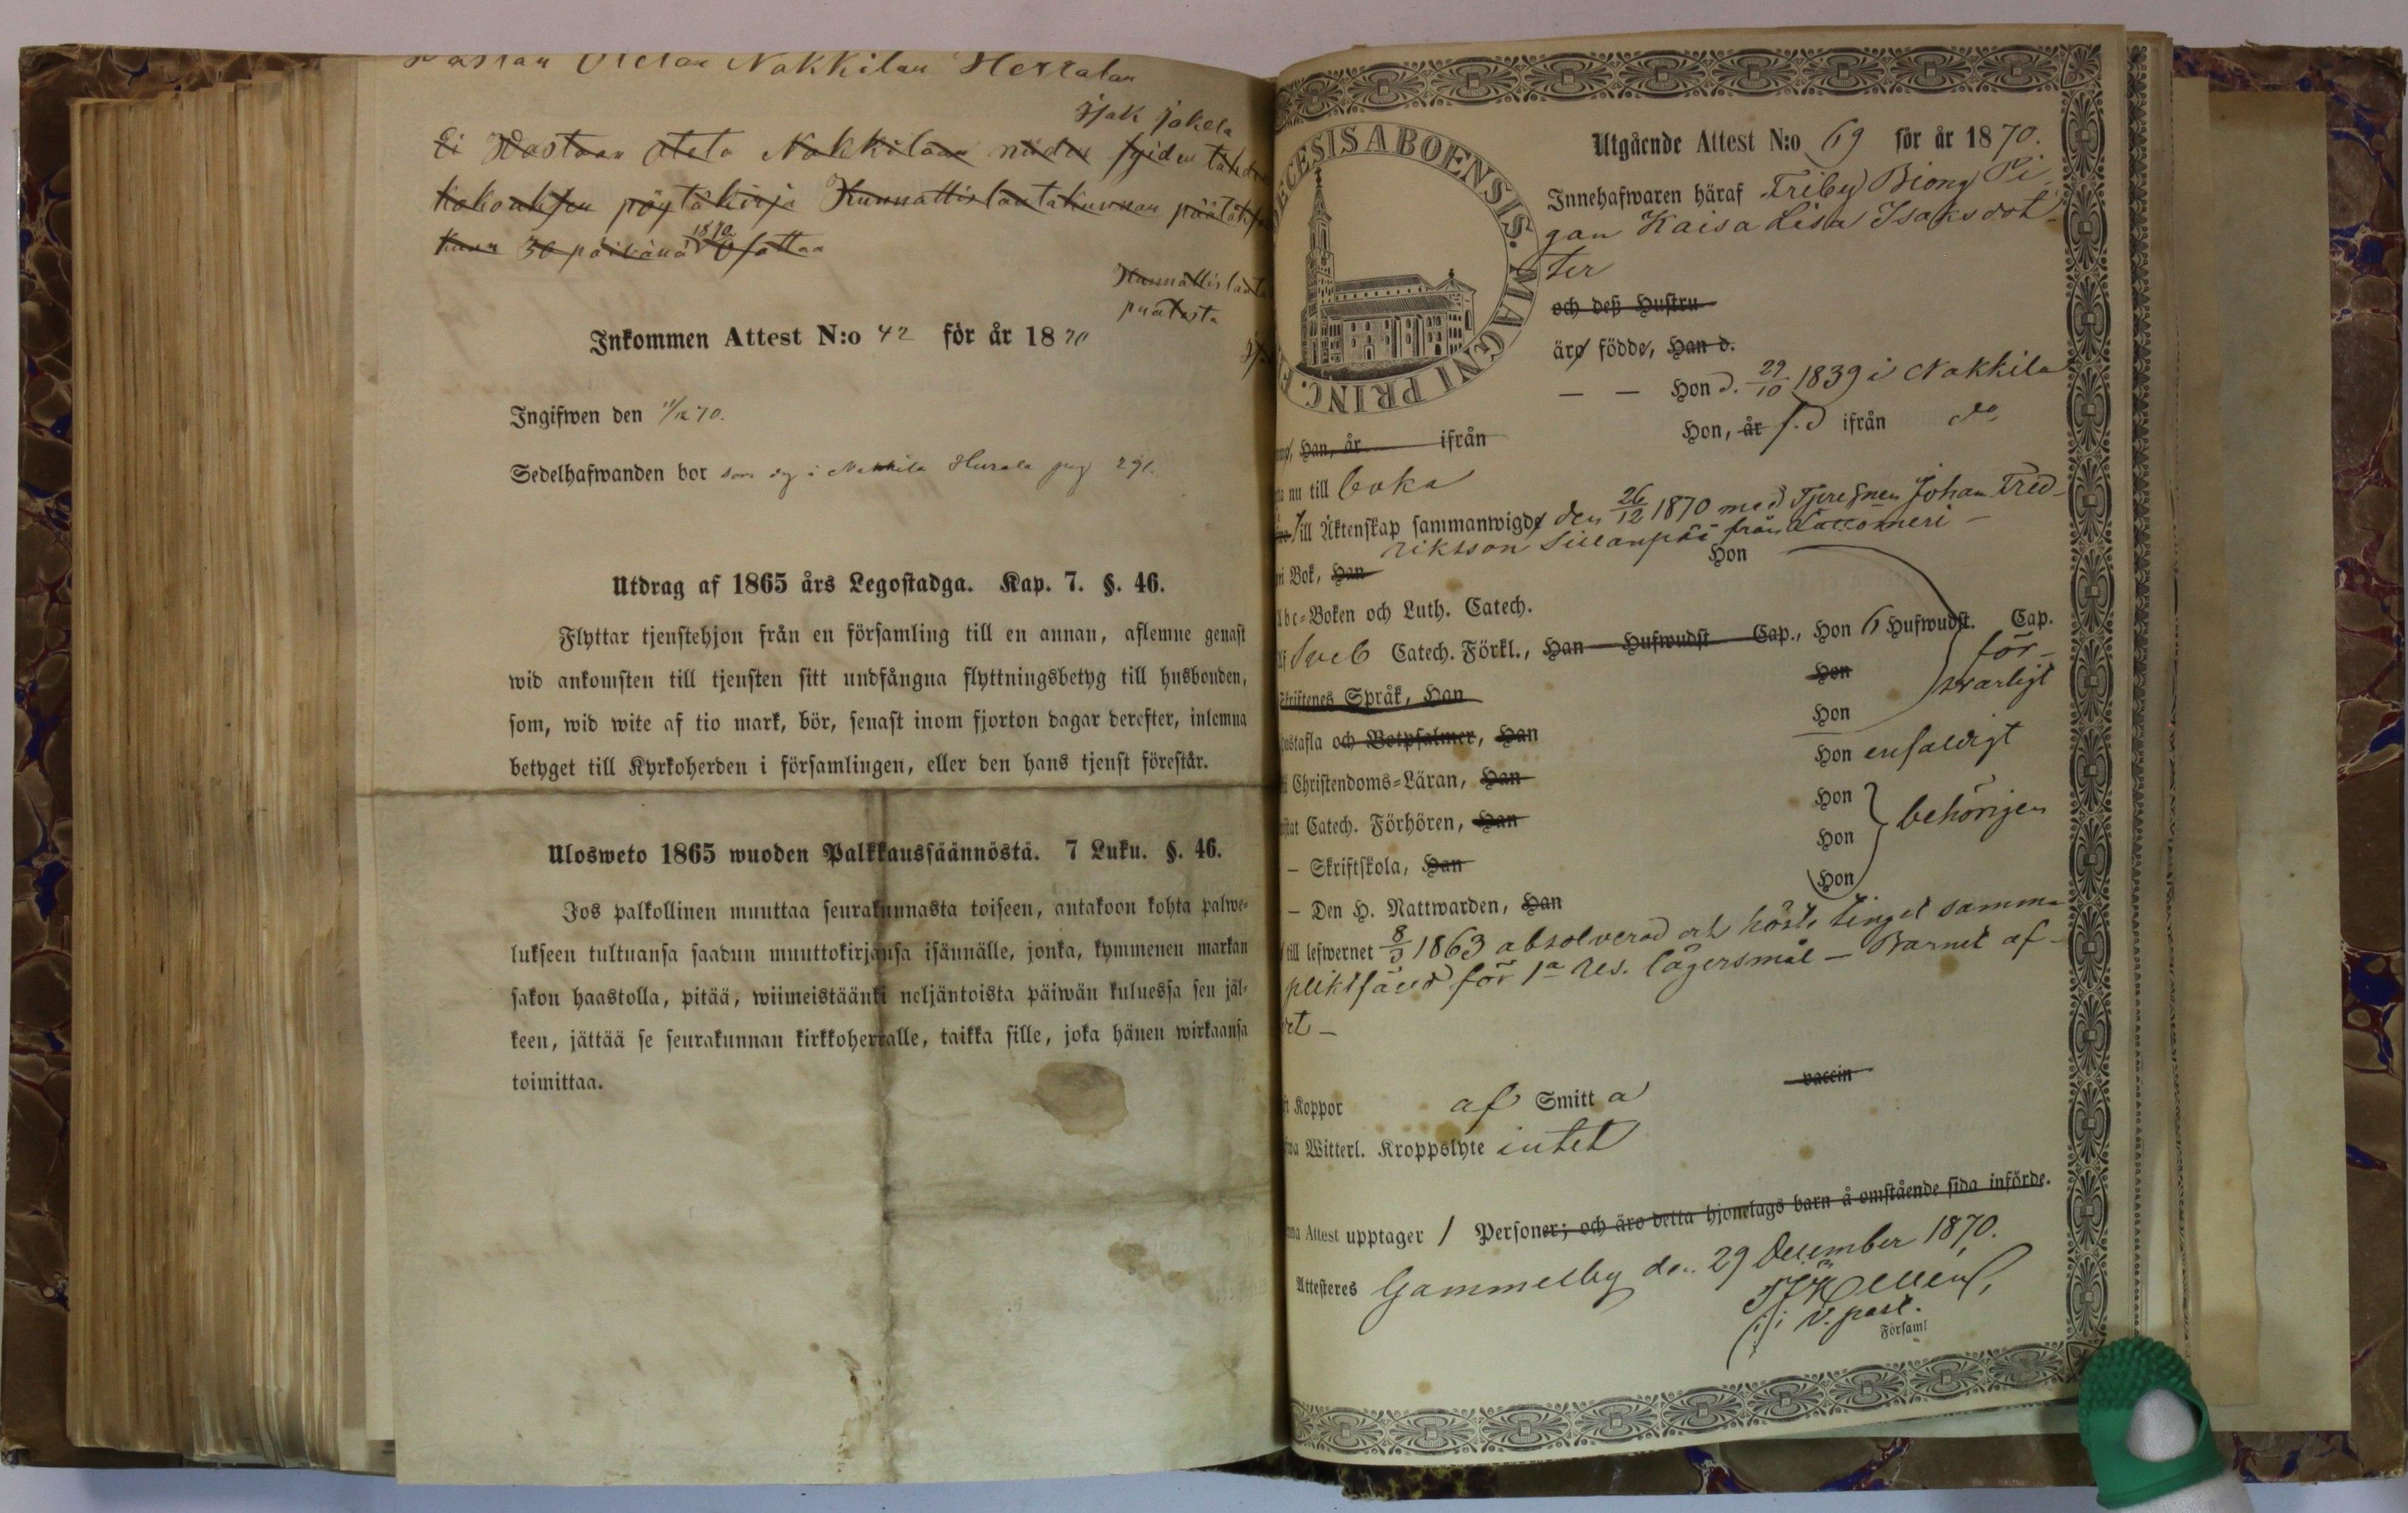 Nakkilan Herralan
Isak Jokela
Ei Wastaan oteta Nakkilaan
kokouksen pöytäkirja Kunnallislautakunnan
kuun 30 päivänä 1870
Inkommen Attest N:o 42 för år 1870
Ingifwen den 11/12 70.
Sedelhafwanden bor som dg i Nakkila pag 291.
Utdrag af 1865 års Legostadga. Kap. 7. §. 46.
Flyttar tjenstehjon från en församling till en annan, aflemne genast
wid ankomsten till tjensten sitt undfångna flyttningsbetyg till husbonden,
som, wid wite af tio mark, bör, senast inom fjorton dagar derefter, inlemna
betyget till Kyrkoherden i församlingen, eller den hans tjenst förestår.
Ulosweto 1865 wuoden Palkkaussäännöstä. 7 Luku. §. 46.
Jos palkollinen muuttaa seurakunnasta toiseen, antakoon kohta palwe-
lukseen tultuansa saadun muuttokirjansa isännälle, jonka, kymmenen markan
sakon haastolla, pitää, wiimeistäänki neljäntoista päiwän kuluessa sen jäl-
keen, jättää se seurakunnan kirkkoherralle, taikka sille, joka hänen wirkaansa
toimittaa.
DIOECESIS ABOENSIS. MAGNI PRINC. F
Utgående Attest N:o 69 för år 1870.
Innehafwaren häraf Friby Biong Pi-
gan Kaisa Lisa Isaksdot-
ter
och deß Hustru
äro födde, Han d.
— — Hon d. 29/10 1839 i Nakkila
Han, år ifrån Hon, år f.d ifrån do
nu till boka
till Äktenskap sammanwigde den 26/12 1870 med Johan Fred-
riksson Sillanpää från Lattomeri —
i Bok, Han Hon
Abc-Boken och Luth. Catech.
Sveb Catech. Förkl., Han Hufwudst Cap., Hon 6 Hufwudst. Cap.
Skriftenes Språk, Han Hon för-
svarligt
Hustafla och Botpsalmer, Han Hon
Christendoms-Läran, Han Hon enfaldigt
Catech. Förhören, Han Hon
— Skriftskola, Han Hon behörigen
— Den H. Nattwarden, Han Hon
till lefwernet 8/3 1863 absolverad och höste tinget samma
pliktfäld för 1a res. lägersmål — Barnet af-
Koppor af Smitta vaccin
Witterl. Kroppslyte intet
Attest upptager 1 Personer; och äro detta hjonelags barn å omstående sida införde.
Attesteres Gammelby den 29 December 1870.
v. past.
Församl